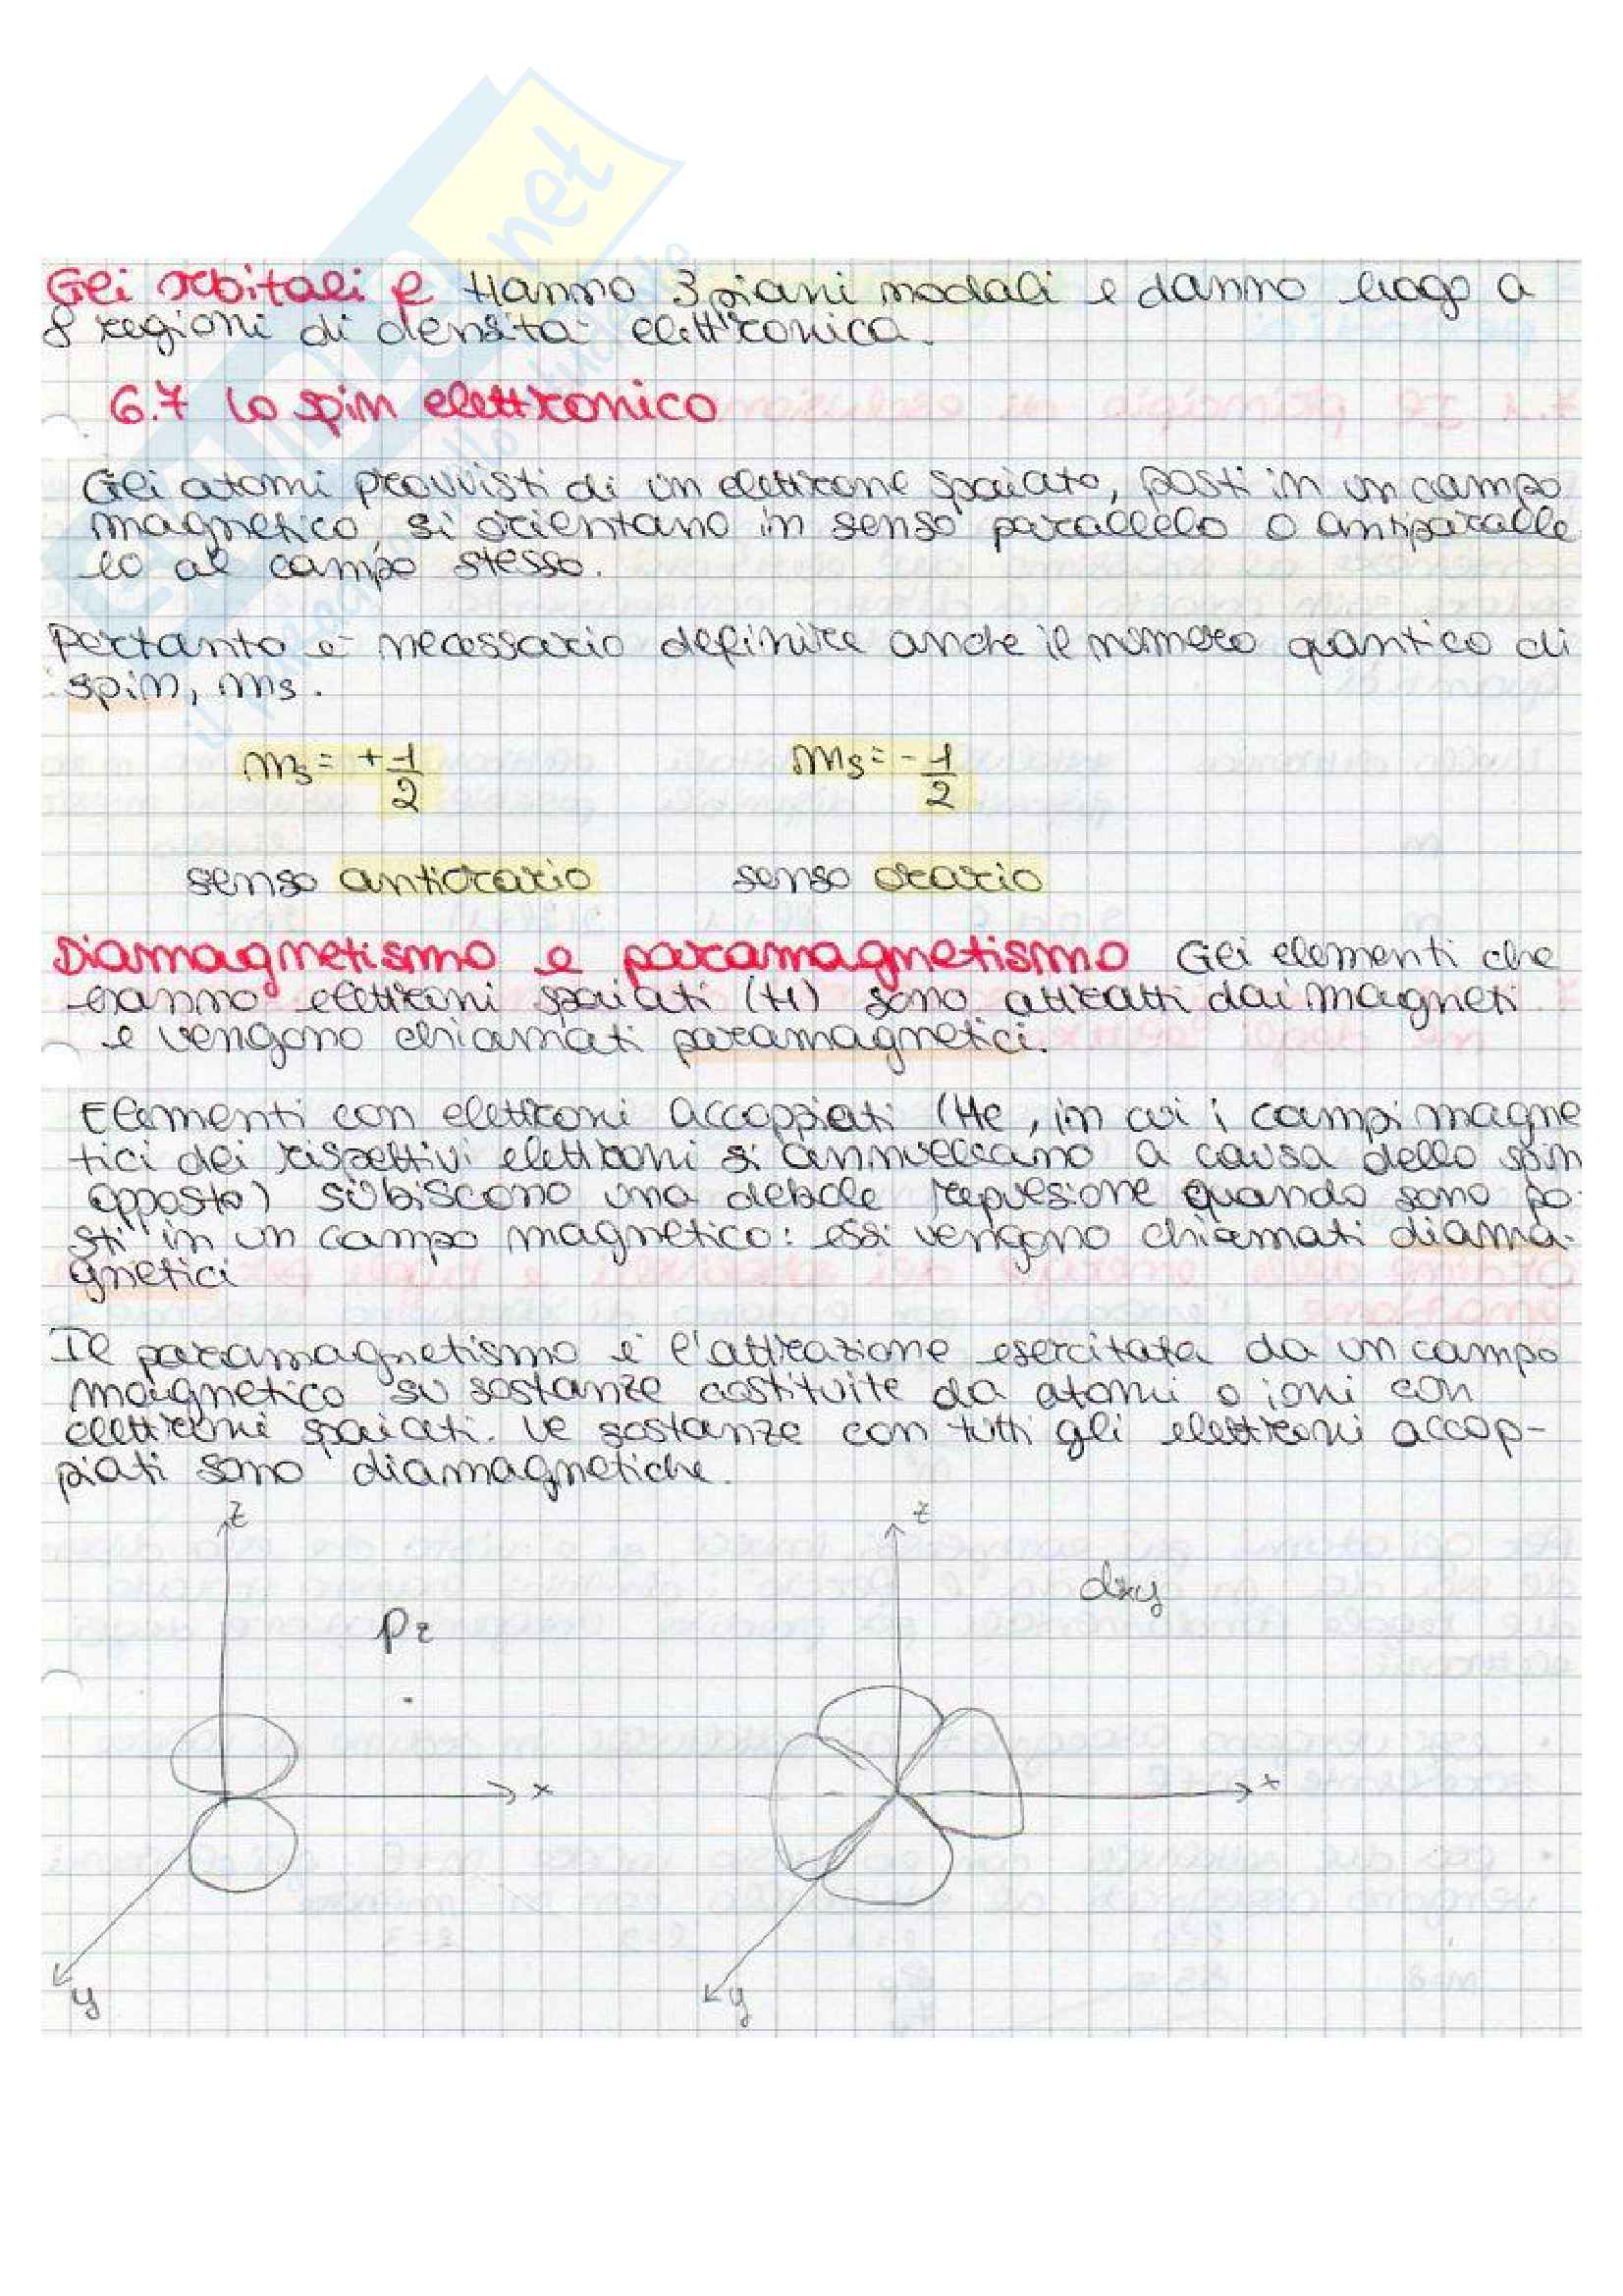 Gli orbitali f Hanno 3 piani nodali e danno luogo a
8 regioni di densità elettronica.
6.7 Lo spin elettronico
Gli atomi provvisti di un elettrone spaiato, posti in un campo
magnetico, si orientano in senso parallelo o antiparalle
lo al campo stesso.
Pertanto è necessario definire anche il numero quantico di
spin, ms.
ms = + 1/2 ms = - 1/2
senso antiorario senso orario
Diamagnetismo e paramagnetismo Gli elementi che
hanno elettroni spaiati (H) sono attratti dai magneti
e vengono chiamati paramagnetici.
Elementi con elettroni accoppiati (He, in cui i campi magne
tici dei rispettivi elettroni si annulleano a causa dello spin
opposto) subiscono una debole repulsione quando sono po-
sti in un campo magnetico: essi vengono chiamati diama-
gnetici
Il paramagnetismo è l'attrazione esercitata da un campo
magnetico su sostanze costituite da atomi o ioni con
elettroni spaiati. Le sostanze con tutti gli elettroni accop-
piati sono diamagnetiche.
z z
dxy
pz
x x
y y